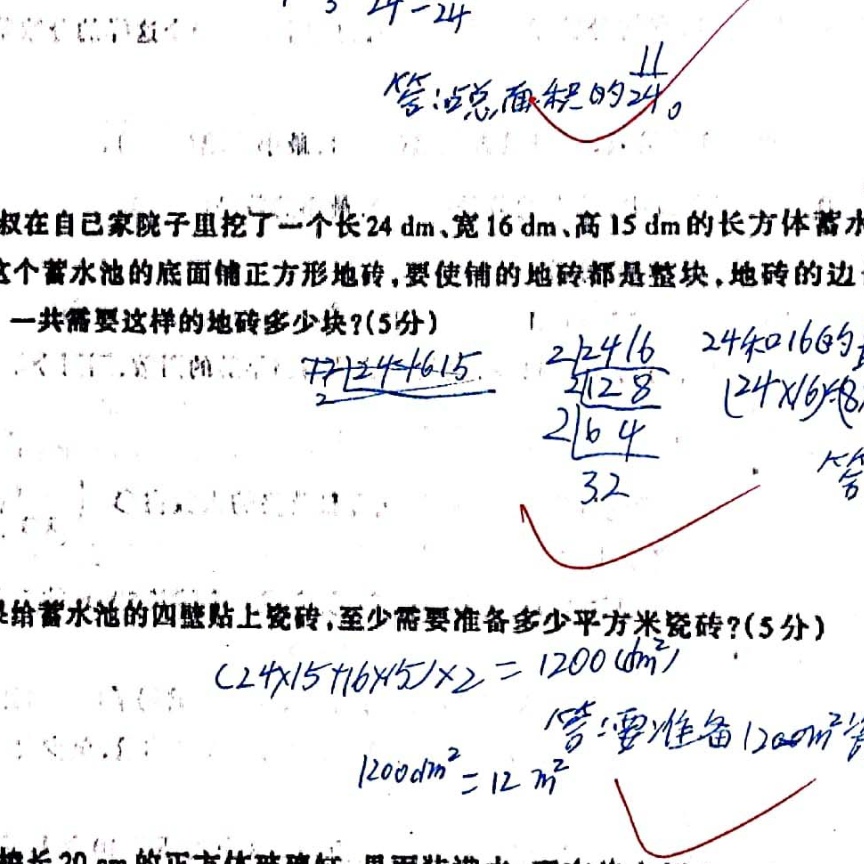 3 24 = 24
答:占总面积的11/24。
叔在自己家院子里挖了一个长24 dm、宽16 dm、高15 dm的长方体蓄水
这个蓄水池的底面铺正方形地砖,要使铺的地砖都是整块,地砖的边
一共需要这样的地砖多少块?(5分)
2 24 16 15
2
2 24 16
2 12 8
2 6 4
3 2
24和16的
(24×16)÷(8
答
给蓄水池的四壁贴上瓷砖,至少需要准备多少平方米瓷砖?(5分)
(24×15+16×15)×2=1200(dm²)
1200dm²=12m²
答:要准备1200m²
棱长20 cm的正方体玻璃缸